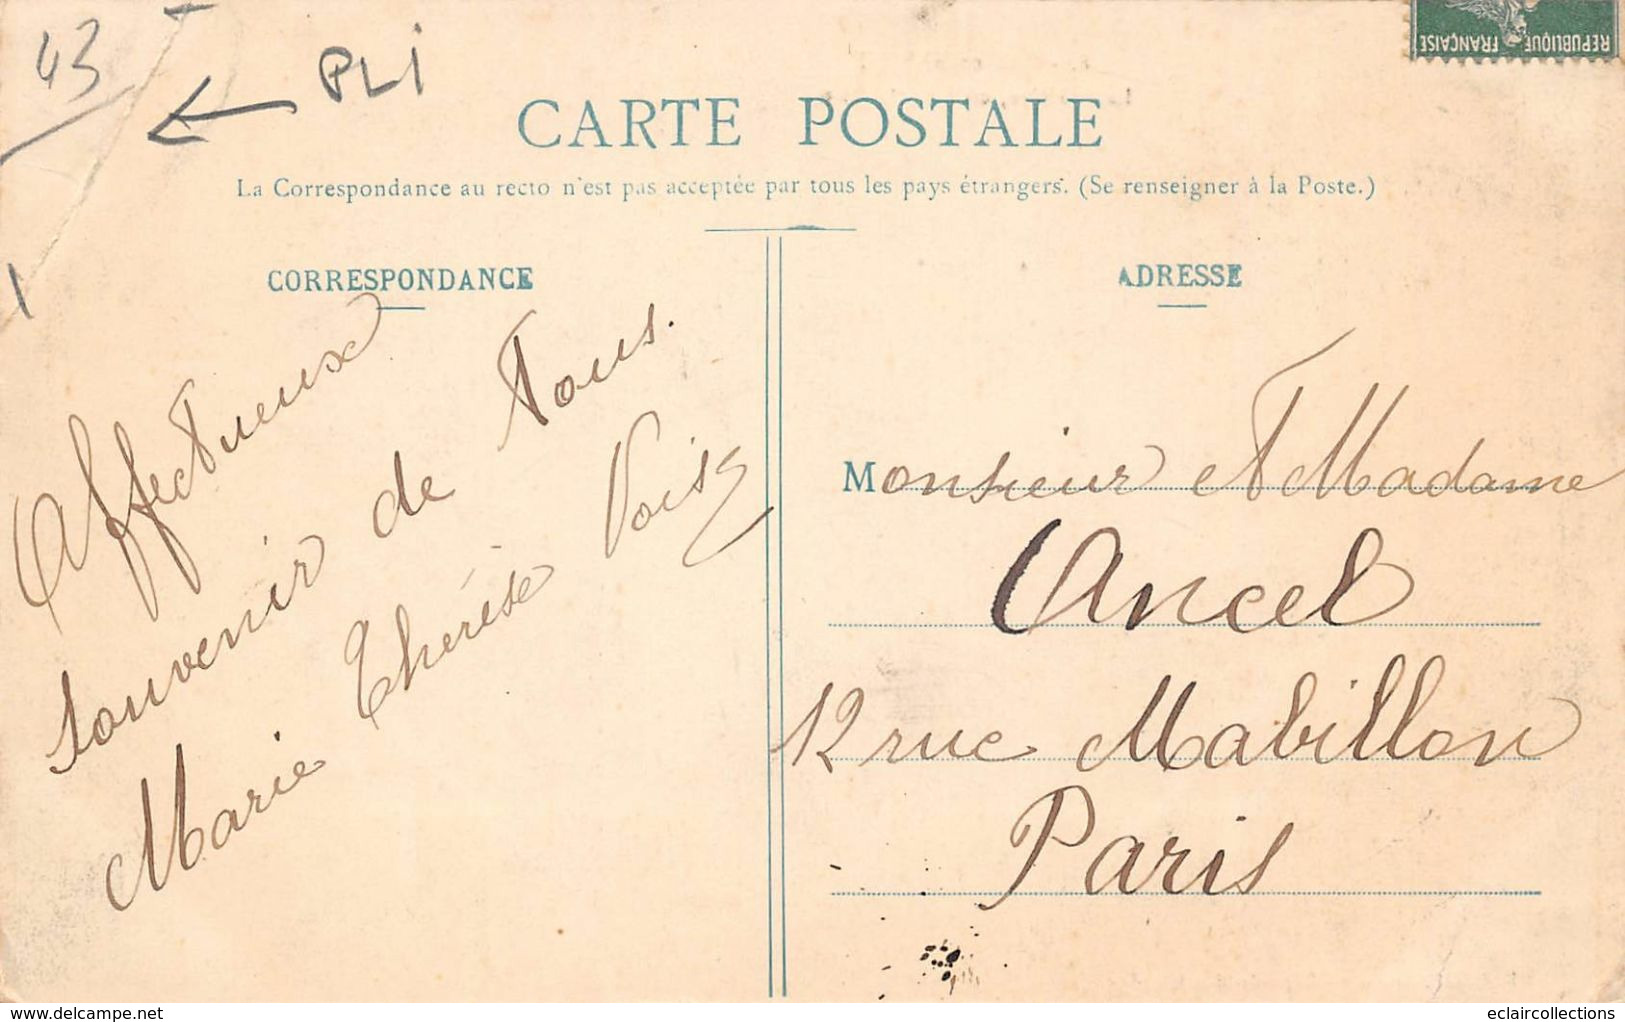 43
PLI
REPUBLIQUE FRANÇAISE
CARTE POSTALE
La Correspondance au recto n'est pas acceptée par tous les pays étrangers. (Se renseigner à la Poste.)
CORRESPONDANCE
Affectueux
souvenir de Tous.
Marie Thérèse
ADRESSE
Monsieur et Madame
Ancel
12 rue Mabillon
Paris
www.delcampe.net
eclaircollections